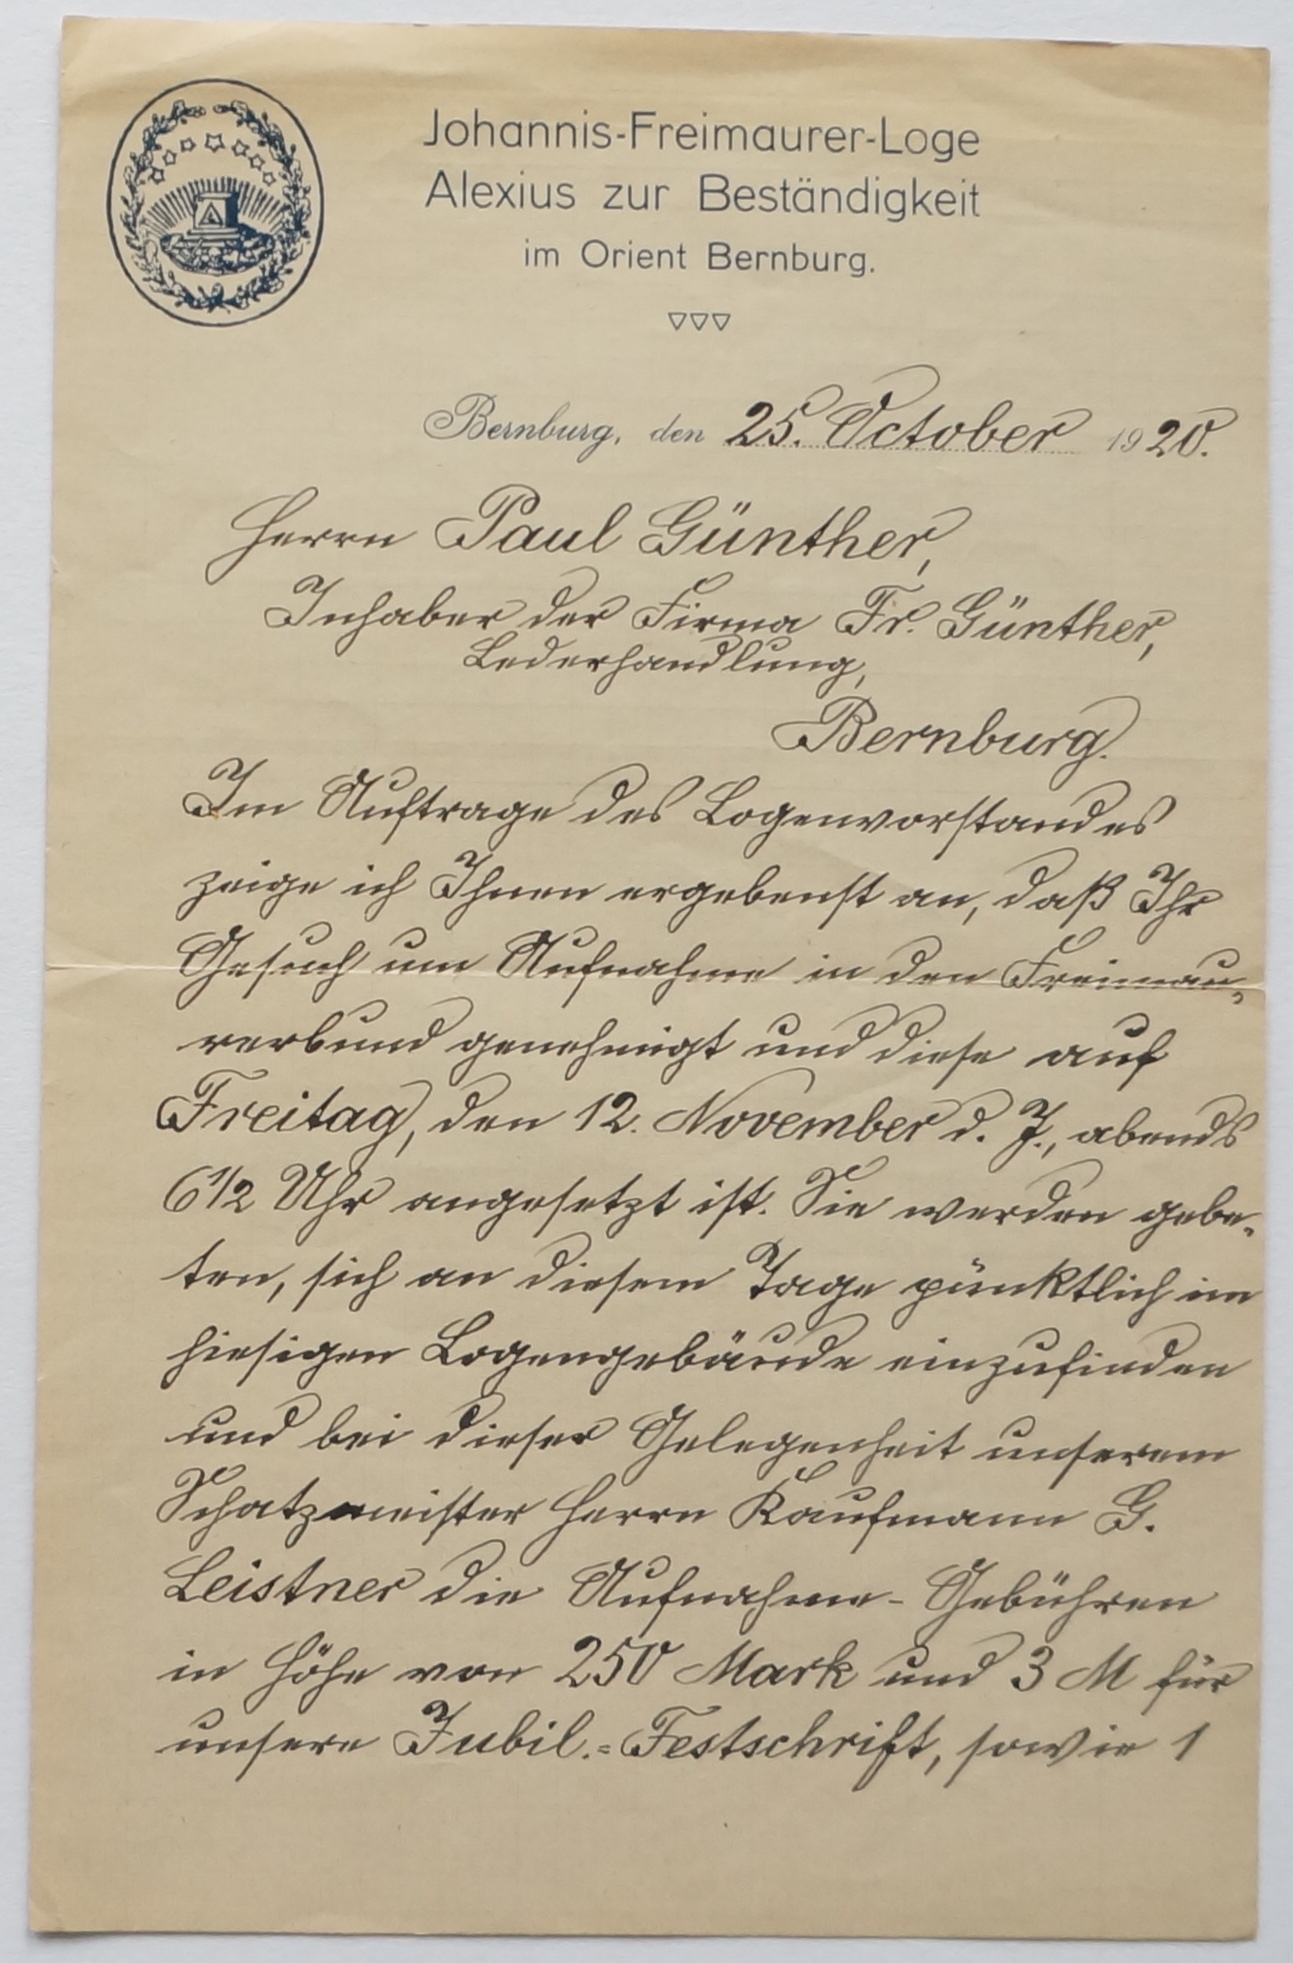 Johannis-Freimaurer-Loge
Alexius zur Beständigkeit
im Orient Bernburg.
Bernburg, den 25. October 1920.
Herrn Paul Günther,
Inhaber der Firma Fr. Günther,
Lederhandlung,
Bernburg.
Im Auftrage des Logenvorstandes
zeige ich Ihnen ergebenst an, daß Ihr
Gesuch um Aufnahme in den Freimau-
rerbund genehmigt und diese auf
Freitag, den 12. November d. J., abends
6 1/2 Uhr angesetzt ist. Sie werden gebe-
ten, sich an diesem Tage pünktlich im
hiesigen Logengebäude einzufinden
und bei dieser Gelegenheit unserem
Schatzmeister Herrn Kaufmann G.
Leistner die Aufnahme-Gebühren
in Höhe von 250 Mark und 3 M für
unsere Jubil.=Festschrift, sowie 1